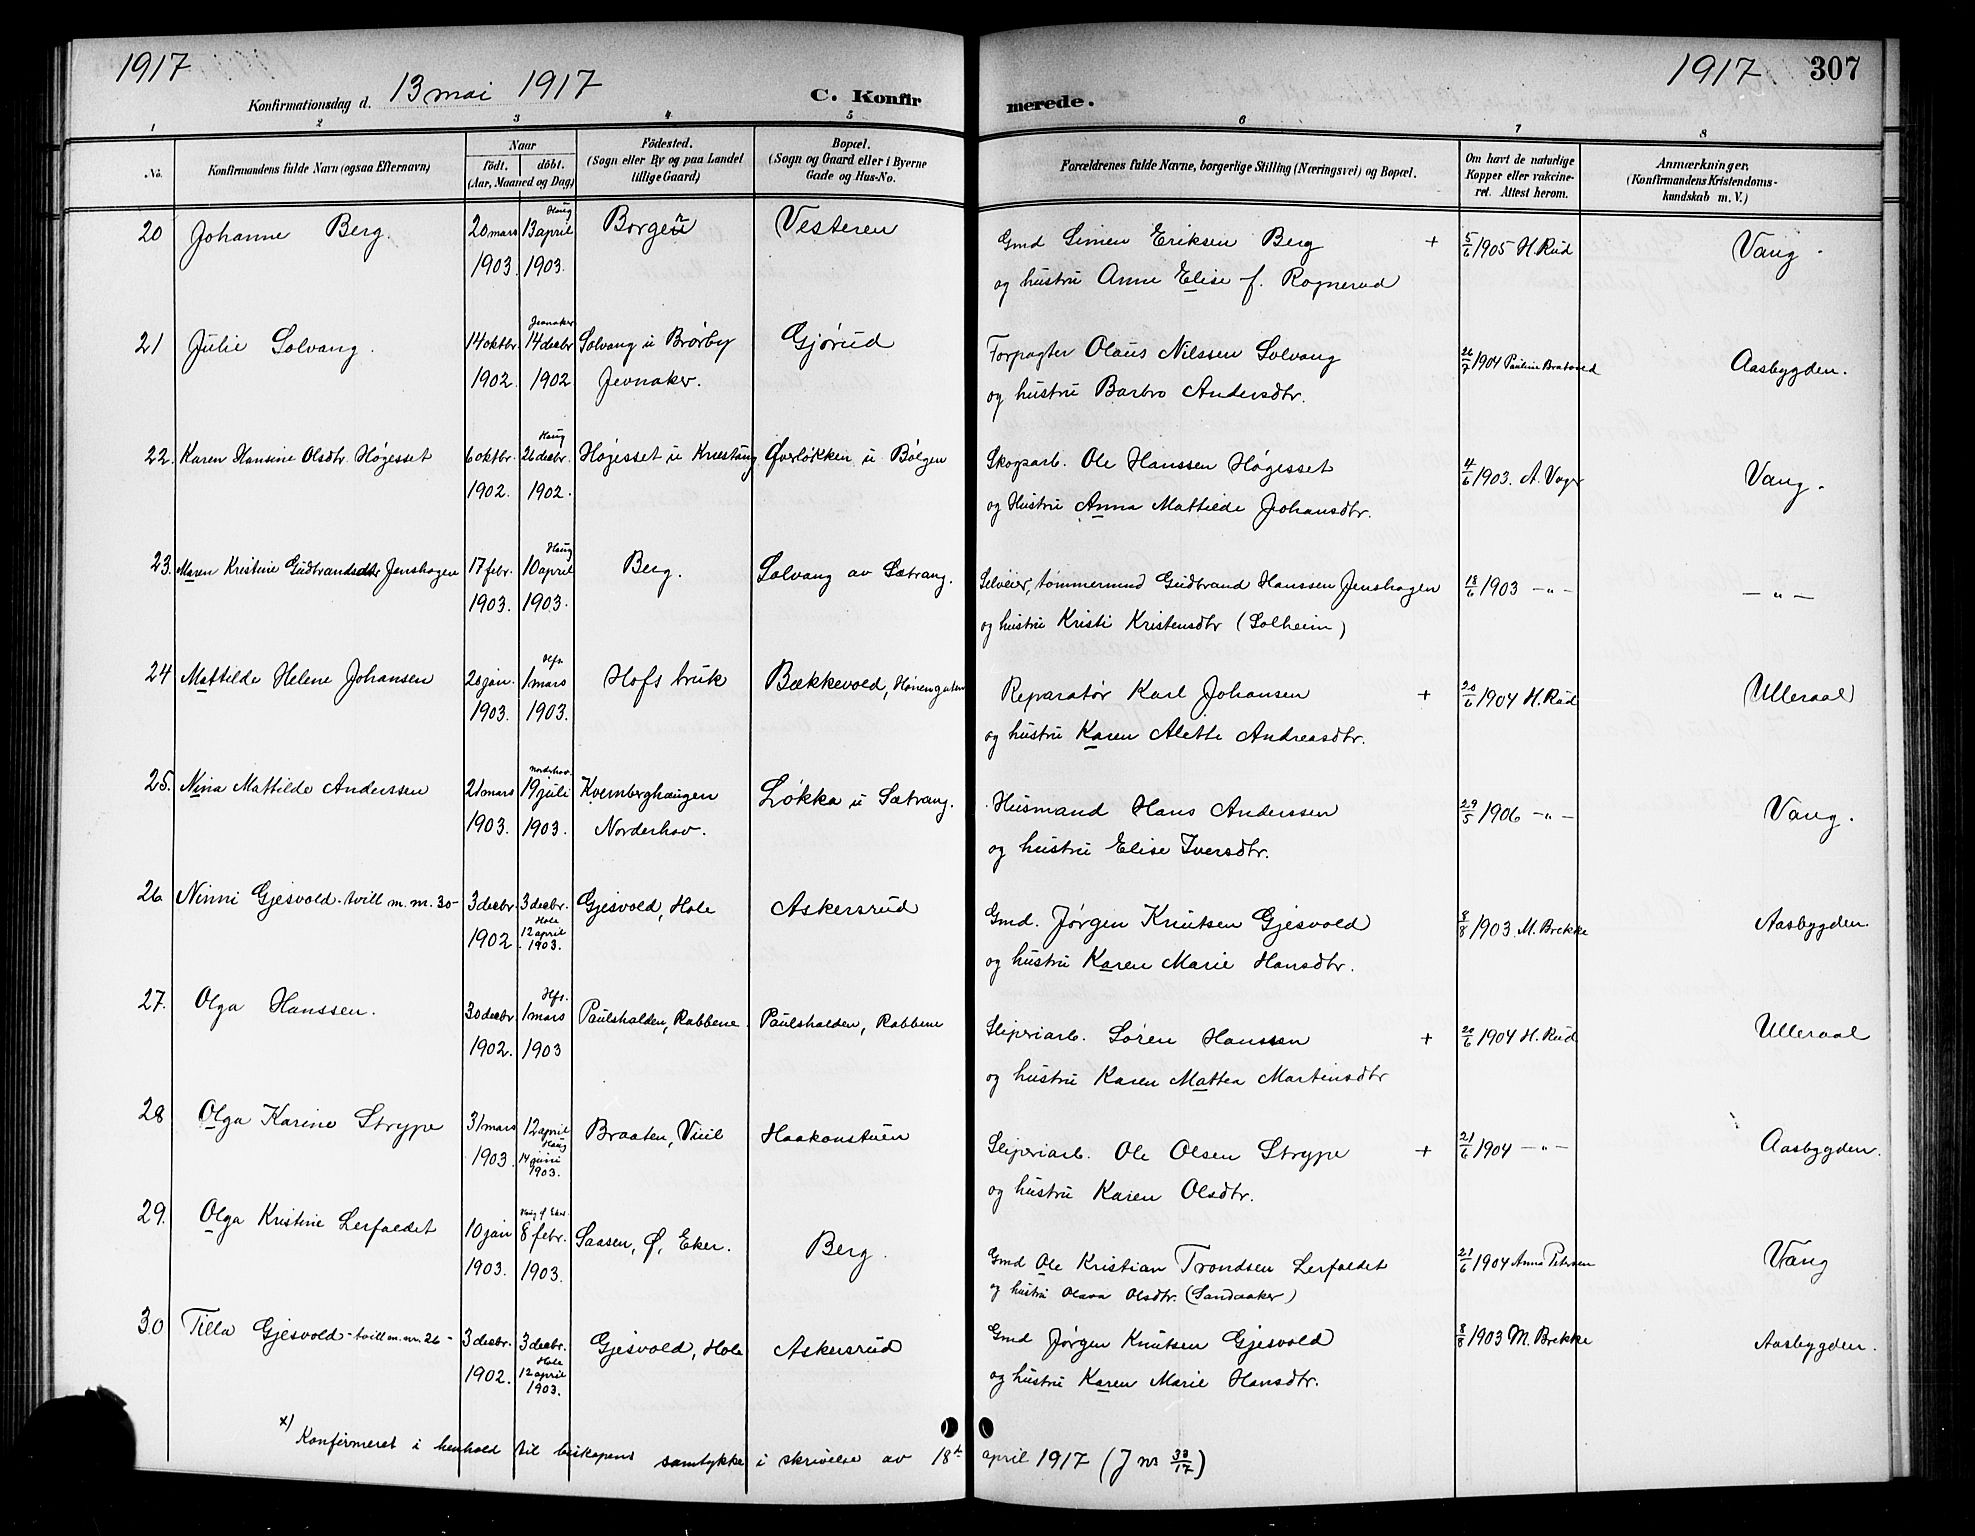 1917
Konfirmationsdag d. 13 mai 1917
C. Konfirmerede.
1917 307
1 2 3 4 5 6 7 8
No.
Konfirmandens fulde Navn (ogsaa Efternavn)
Naar
födt. döbt.
(Aar, Maaned og Dag)
Födested.
(Sogn eller By og paa Landet
tillige Gaard)
Bopæl.
(Sogn og Gaard eller i Byerne
Gade og Hus-No.
Forældrenes fulde Navne, borgerlige Stilling (Næringsvei) og Bopæl.
Om havt de naturlige
Kopper eller vakcine-
ret. Attest herom.
Anmærkninger.
(Konfirmandens Kristendoms-
kundskab m. V.)
20 Johanne Berg. 20 mars 1903. Haug 13 april 1903. Borgen Vesteren
Gmd Simen Eriksen Berg + 5/6 1905 H. Rud Vang.
og hustru Anne Elise f. Rognerud
21 Julie Solvang. 14 oktbr. 1902. Jevnaker 14 decbr 1902 Solvang u Brørby Jevnaker. Gjørud
Forpagter Olaus Nilssen Solvang 26/7 1904 Pauline Aasbygden.
og hustru Barbro Andersdtr.
22. Karen Hansine Olsdtr. Høgesset 6 oktbr. 1902. Haug 26 decbr. 1902. Høgesset u Øverløkken u Bølgen
Skogarb. Ole Hanssen Høgesset 4/6 1903. A. Vang.
og Hustru Anna Mattilde Johansdtr.
23. Maren Kristine Gudbrandsdtr Jenshagen 17 febr. 1903. Haug 10 april 1903. Berg. Solvang av Sætrang.
Selveier, tømmermand Gudbrand Hanssen Jenshagen 18/6 1903 -"- -"-
og hustru Kristi Kristensdtr (Solheim)
24 Mattilde Helene Johansen 20 jan. 1903. Hfs. 1 mars 1903. Hofs bruk Bækkevold, Hønengaten
Reparatør Karl Johansen + 20/6 1904 H. Rud Ulleraal
og hustru Karen Alette Andreasdtr.
25. Nina Mattilde Anderssen 21 mars 1903. Norderhov. 19 juli 1903. Kvernberghaugen Norderhov. Løkka u Sætrang.
Husmand Hans Anderssen 29/5 1906 -"- Vang.
og hustru Elise Iversdtr.
26 Ninni Gjesvold - tvill m. nr. 30 - 3 decbr. 1902. 3 decbr. Hole 12 april 1903. Gjesvold, Hole Askersrud
Gmd. Jørgen Knutsen Gjesvold 8/8 1903. M. Brekke Aasbygden.
og hustru Karen Marie Hansdtr.
27. Olga Hanssen. 30 decbr. 1902. Hfs. 1 mars 1903 Paulshalden, Rabbene. Paulshalden, Rabbene
Sliperiarb. Søren Hanssen + 20/6 1904 H. Rud Ulleraal
og hustru Karen Mattea Martinsdtr
28 Olga Karine Strype 31 mars 1903. 12 april Haug 14 juni 1903. Braaten, Viul Haakonstuen
Sliperiarb. Ole Olsen Strype + 21/6 1904 -"- Aasbygden.
og hustru Karen Olsdtr.
29. Olga Kristine Lerfaldet 10 jan 1903. Haug Ø Eker. 8 febr. 1903. Saasen, Ø. Eker. Berg.
Gmd Ole Kristian Trondsen Lerfaldet 21/6 1904 Anna Petersen Vang
og hustru Olava Olsdtr. (Sandaaker)
30 Tilla Gjesvold - tvill m. nr. 26 - 3 decbr. 1902. 3 decbr. Hole 12 april 1903. Gjesvold, Hole Askersrud
Gmd Jørgen Knutsen Gjesvold 8/8 1903 M. Brekke Aasbygden.
og hustru Karen Marie Hansdtr.
x) Konfirmeret i henhold til biskopens samtykke i skrivelse av 18de april 1917 (J nr 33/17)